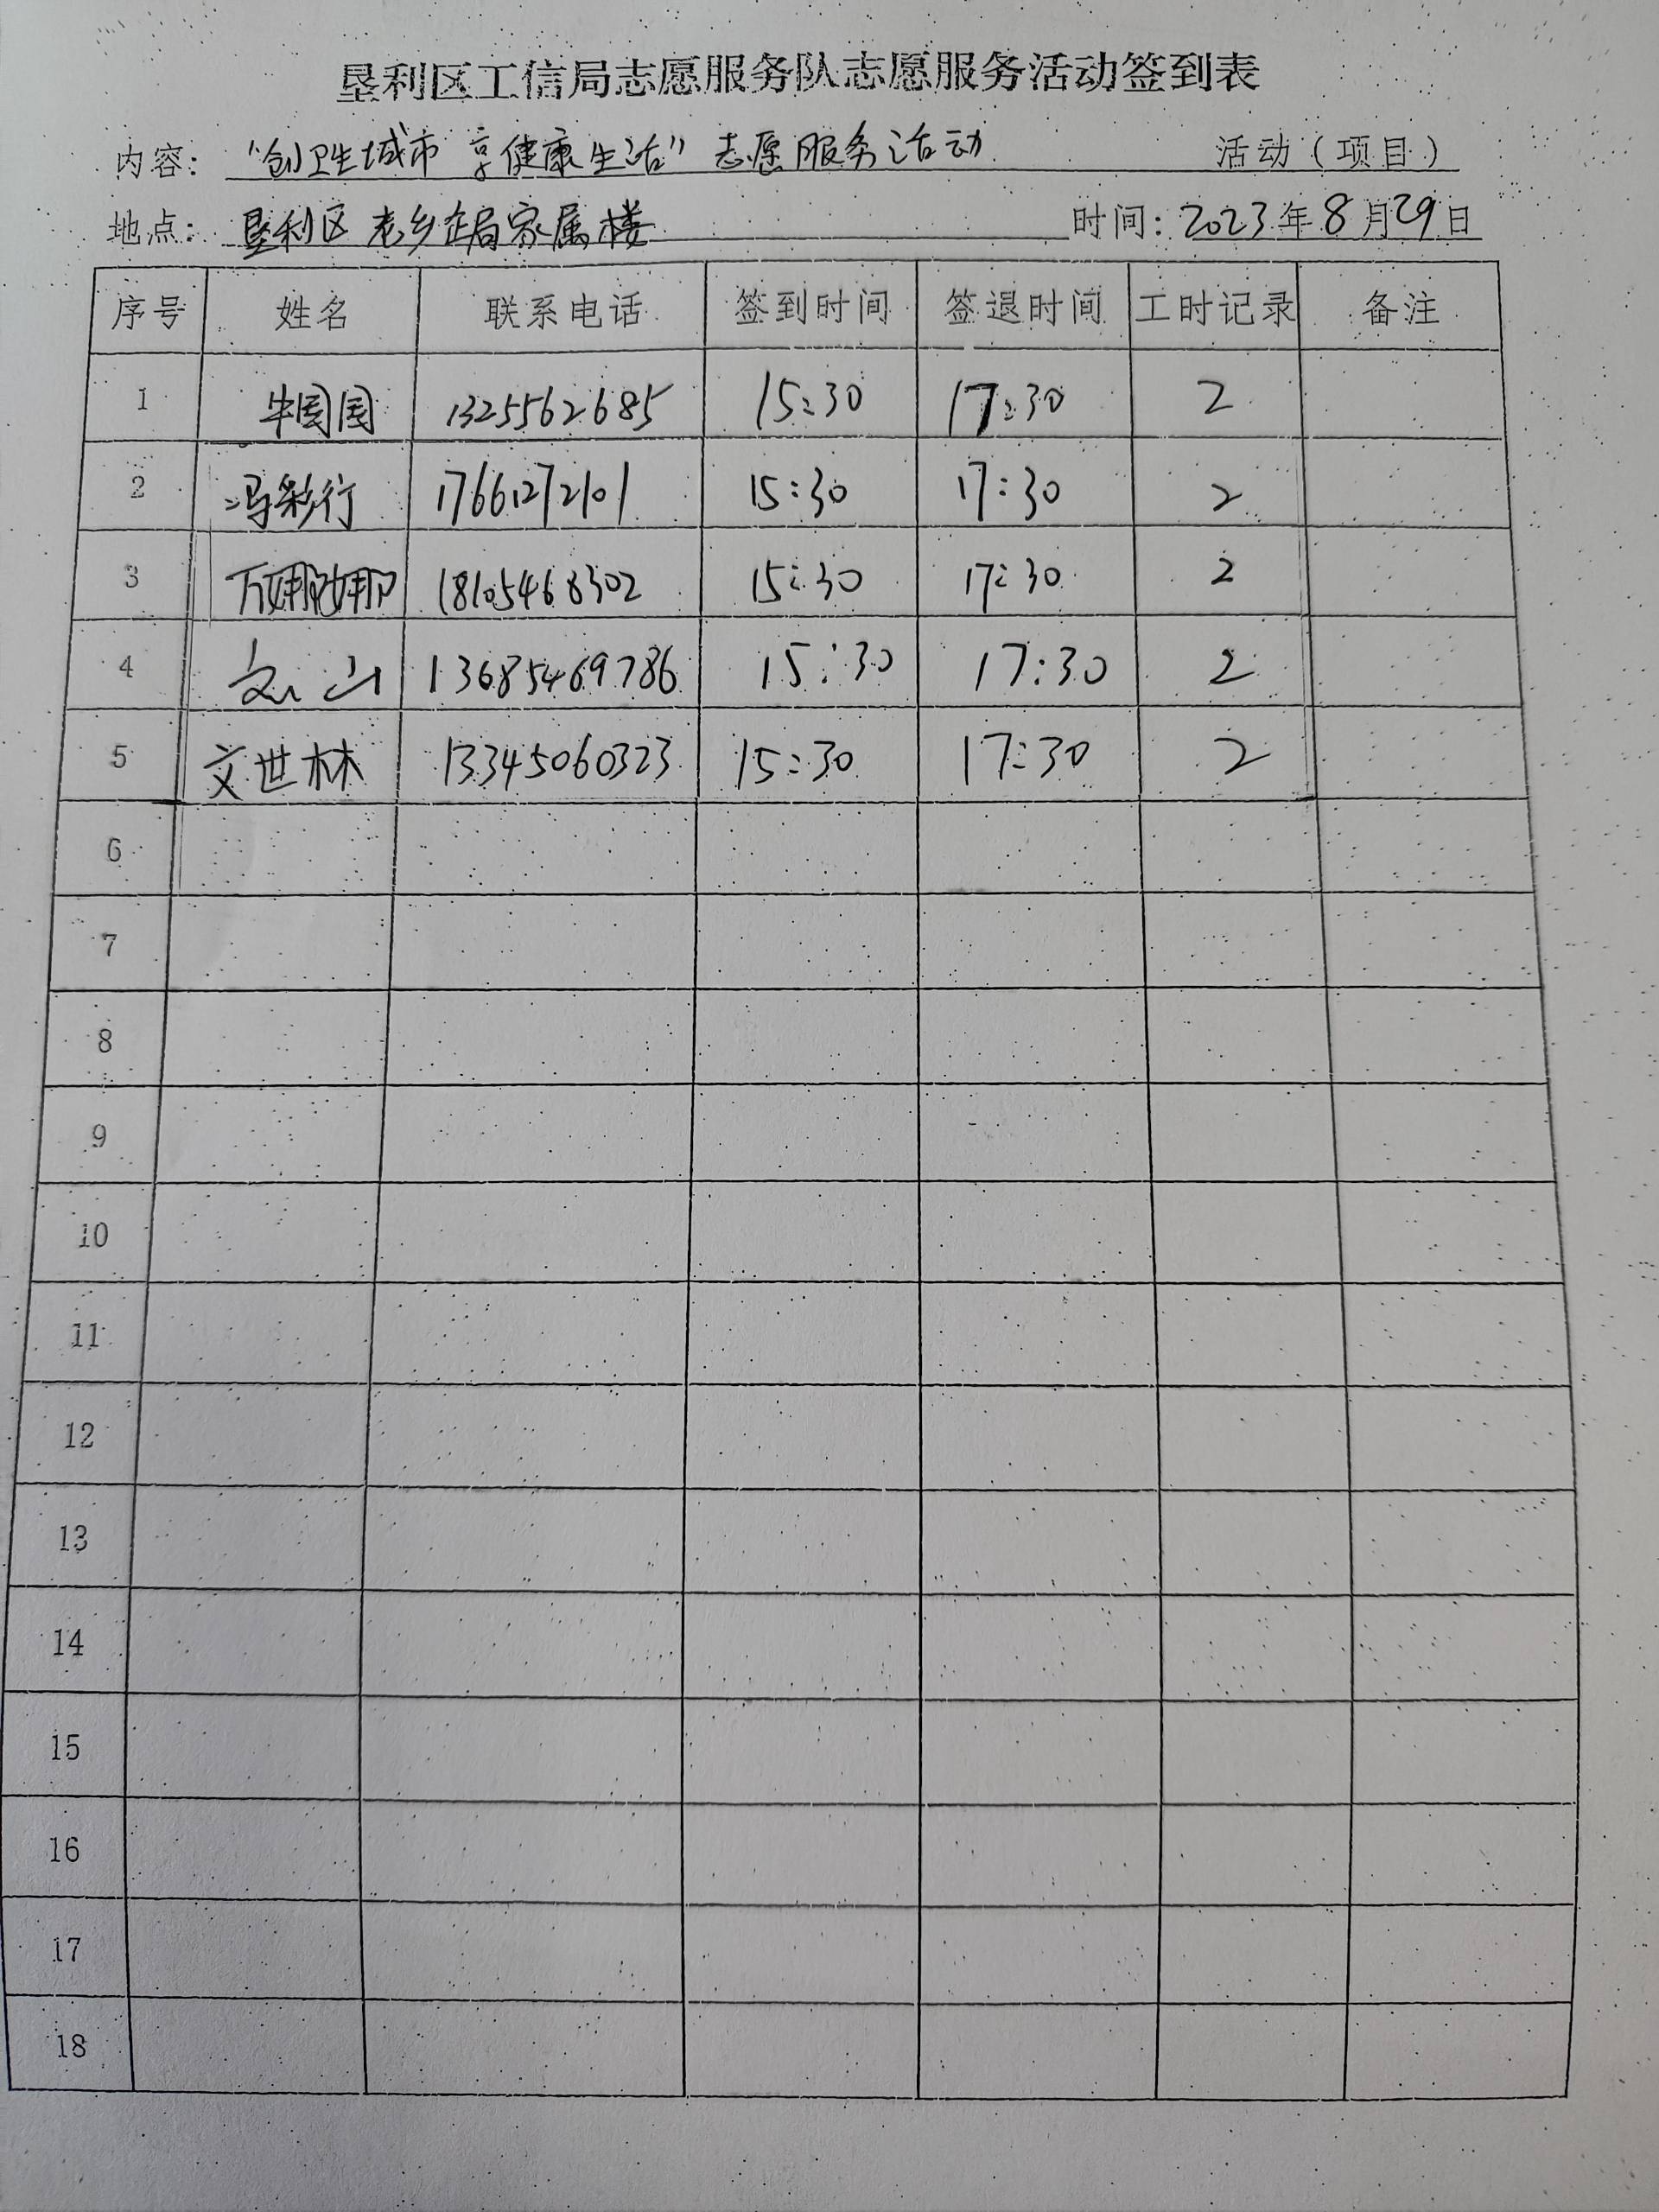 垦利区工信局志愿服务队志愿服务活动签到表
内容: "创卫生城市 享健康生活" 志愿服务活动 活动(项目)
地点: 垦利区老乡企局家属楼 时间: 2023年8月29日
序号 姓名 联系电话 签到时间 签退时间 工时记录 备注
1 牛国国 1325562685 15:30 17:30 2
2 冯彩行 17661272101 15:30 17:30 2
3 万娜娜 18105468302 15:30 17:30 2
4 13685469786 15:30 17:30 2
5 文世林 13345060323 15:30 17:30 2
6
7
8
9
10
11
12
13
14
15
16
17
18